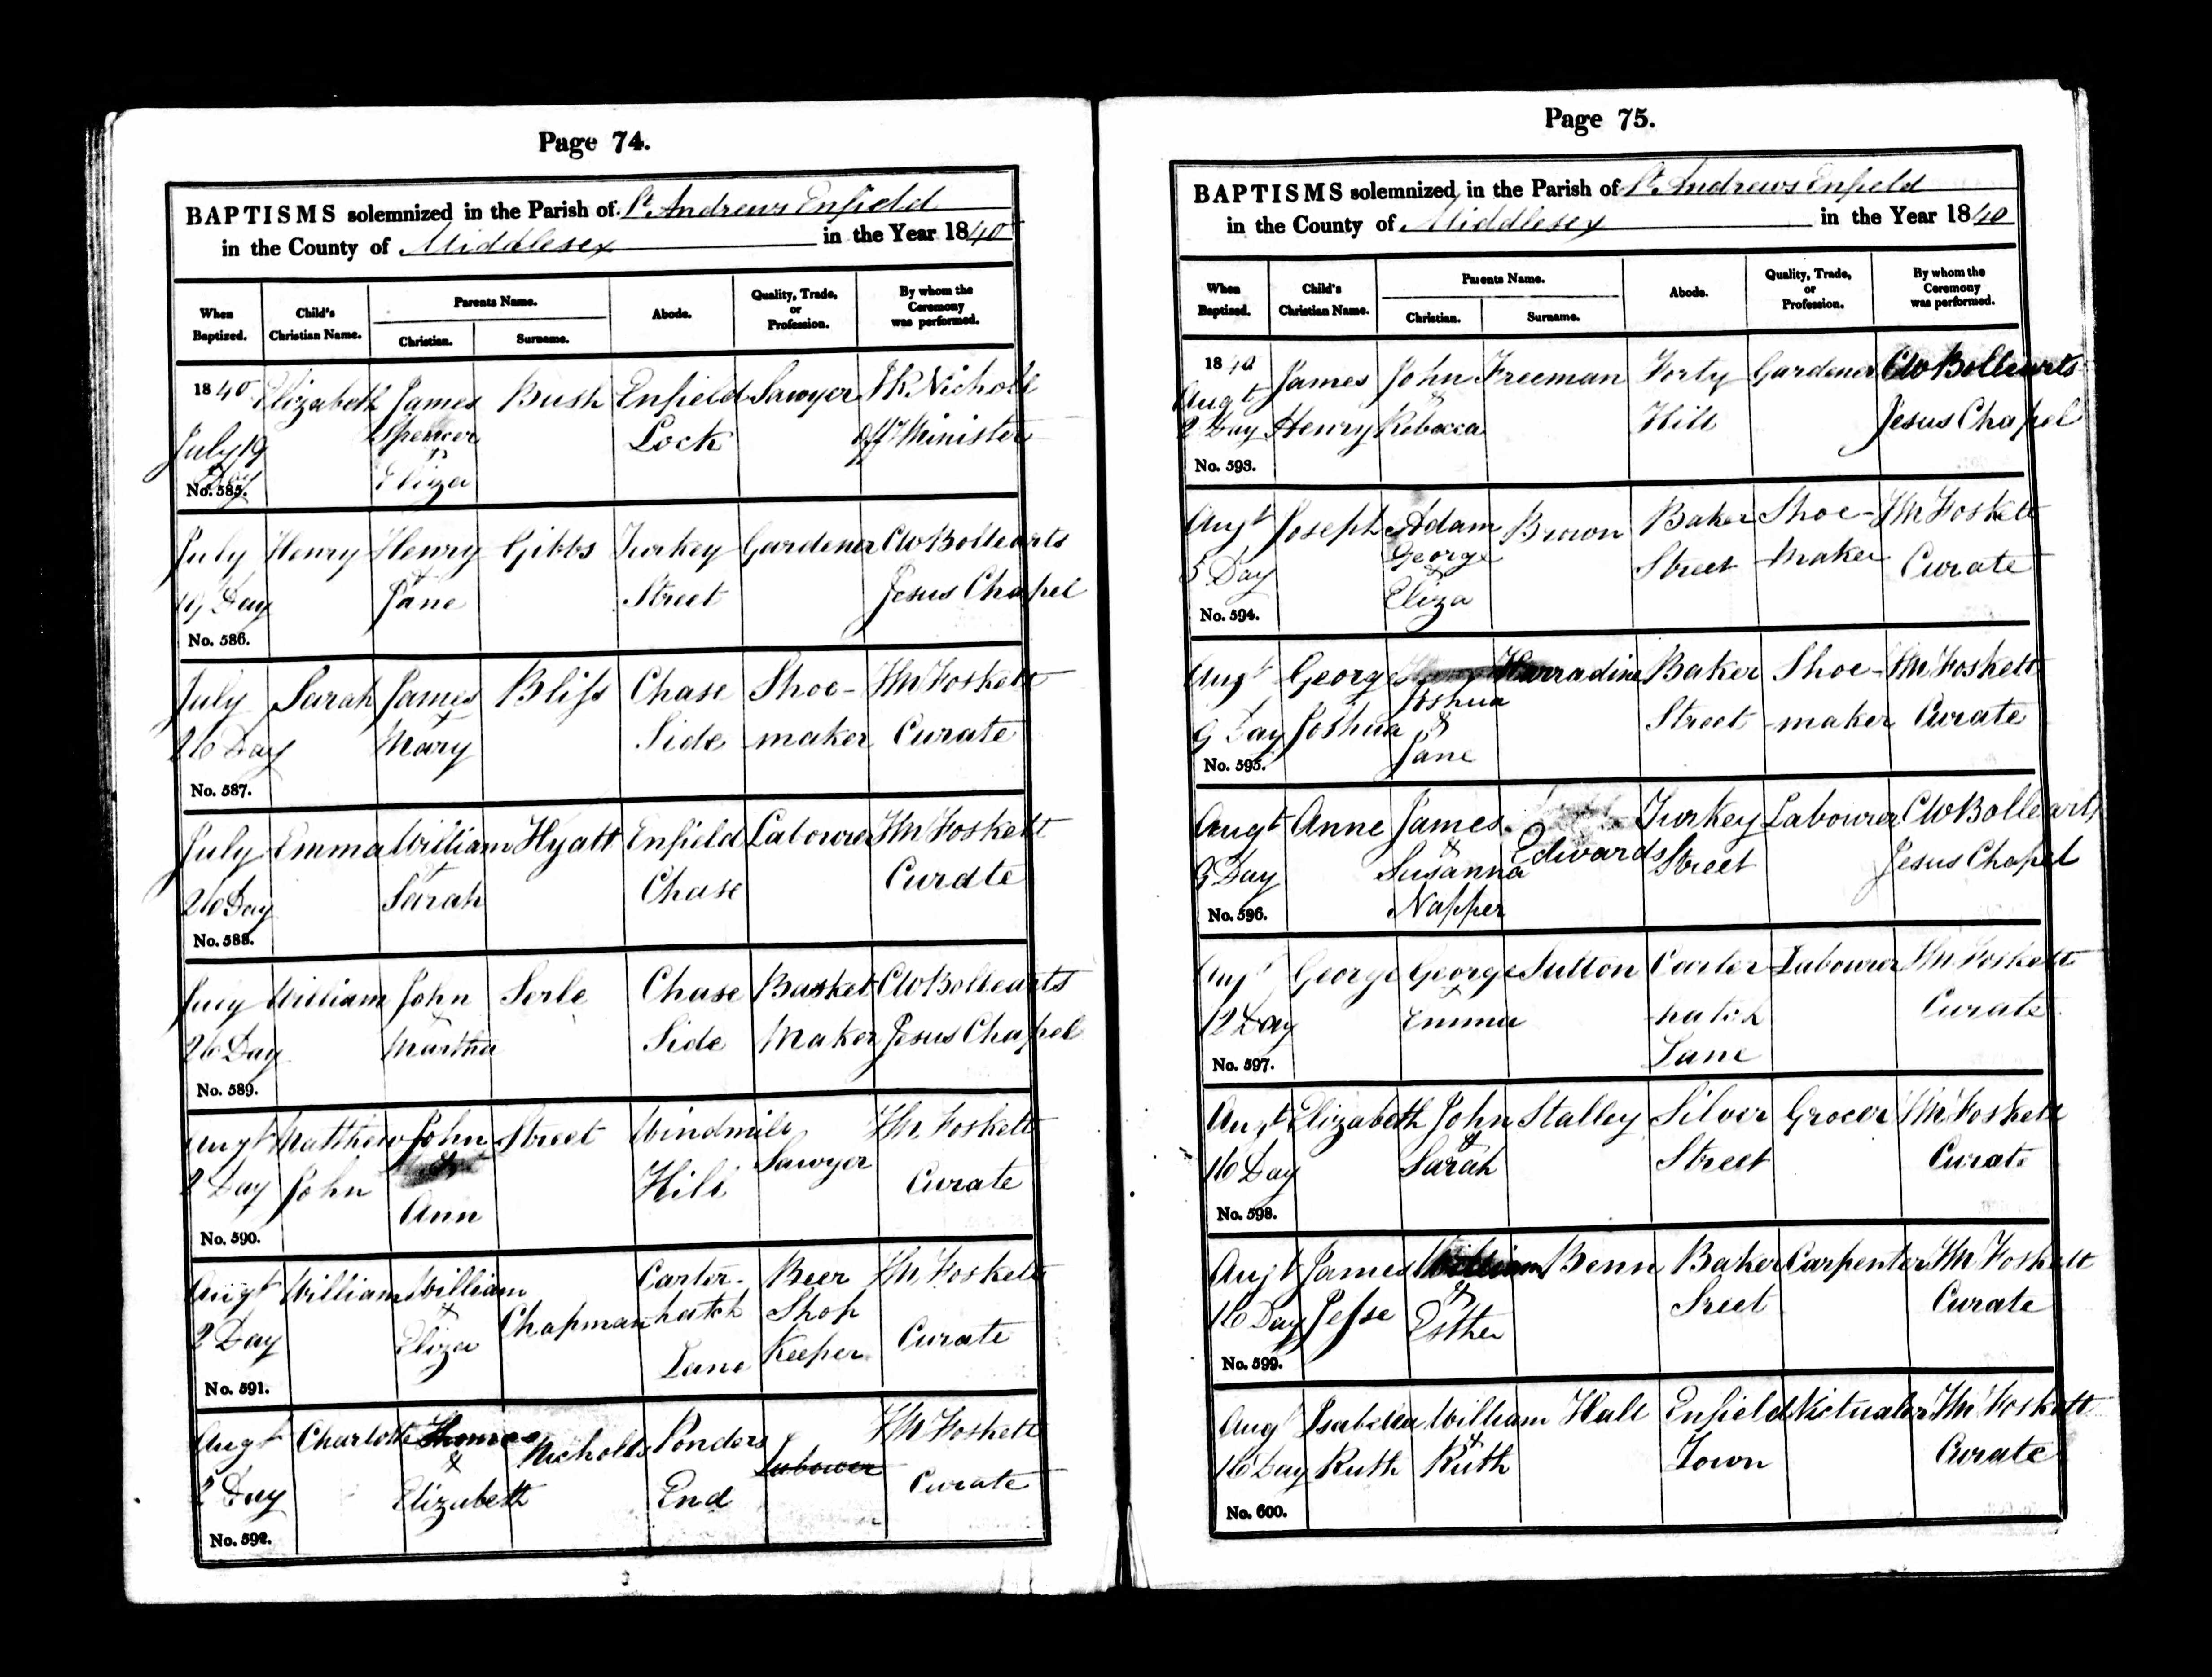 Page 74.
BAPTISMS solemnized in the Parish of St Andrews Enfield
in the County of Middlesex in the Year 1840
When Baptized.
Child's Christian Name.
Parents Name.
Christian.
Surname.
Abode.
Quality, Trade, or Profession.
By whom the Ceremony was performed.
1840 Elizabeth James Bush Enfield Sawyer J R Nicholl
July 19 Spencer Lock Offg Minister
Day & Eliza
No. 585.
July Henry Henry Gibbs Turkey Gardener CW Bollearts
19 Day & Jane Street Jesus Chapel
No. 586.
July Sarah James Bliss Chase Shoe- HM Foskett
26 Day & Mary Side -maker Curate
No. 587.
July Emma William Hyatt Enfield Labourer HM Foskett
26 Day & Sarah Chase Curate
No. 588.
July William John Serle Chase Basket CW Bollearts
26 Day & Martha Side Maker Jesus Chapel
No. 589.
Augt Matthew John Street Windmill Sawyer HM Foskett
2 Day John & Ann Hill Curate
No. 590.
Augt William William Chapman Carter- Beer HM Foskett
2 Day & Eliza hatch Shop Curate
Lane Keeper
No. 591.
Augt Charlotte Thomas Nicholds Ponders Labourer HM Foskett
2 Day & Elizabeth End Curate
No. 592.
Page 75.
BAPTISMS solemnized in the Parish of St Andrews Enfield
in the County of Middlesex in the Year 1840
When Baptized.
Child's Christian Name.
Parents Name.
Christian.
Surname.
Abode.
Quality, Trade, or Profession.
By whom the Ceremony was performed.
1840 James John Freeman Forty Gardener CW Bollearts
Augt 2 Day Henry & Rebecca Hill Jesus Chapel
No. 593.
Augt Joseph Adam Brown Baker Shoe- HM Foskett
5 Day George & Eliza Street -maker Curate
No. 594.
Augt George Joshua Harradine Baker Shoe- HM Foskett
9 Day Joshua & Jane Street -maker Curate
No. 595.
Augt Anne James Edwards Turkey Labourer CW Bollearts
9 Day & Susanna Street Jesus Chapel
Napper
No. 596.
Augt George George Sutton Carter- Labourer HM Foskett
12 Day & Emma -hatch Curate
Lane
No. 597.
Augt Elizabeth John Stalley Silver Grocer HM Foskett
16 Day & Sarah Street Curate
No. 598.
Augt James William Benn Baker Carpenter HM Foskett
16 Day Jesse & Esther Sreet Curate
No. 599.
Augt Isabella William Hall Enfield Victualer HM Foskett
16 Day Ruth & Ruth Town Curate
No. 600.